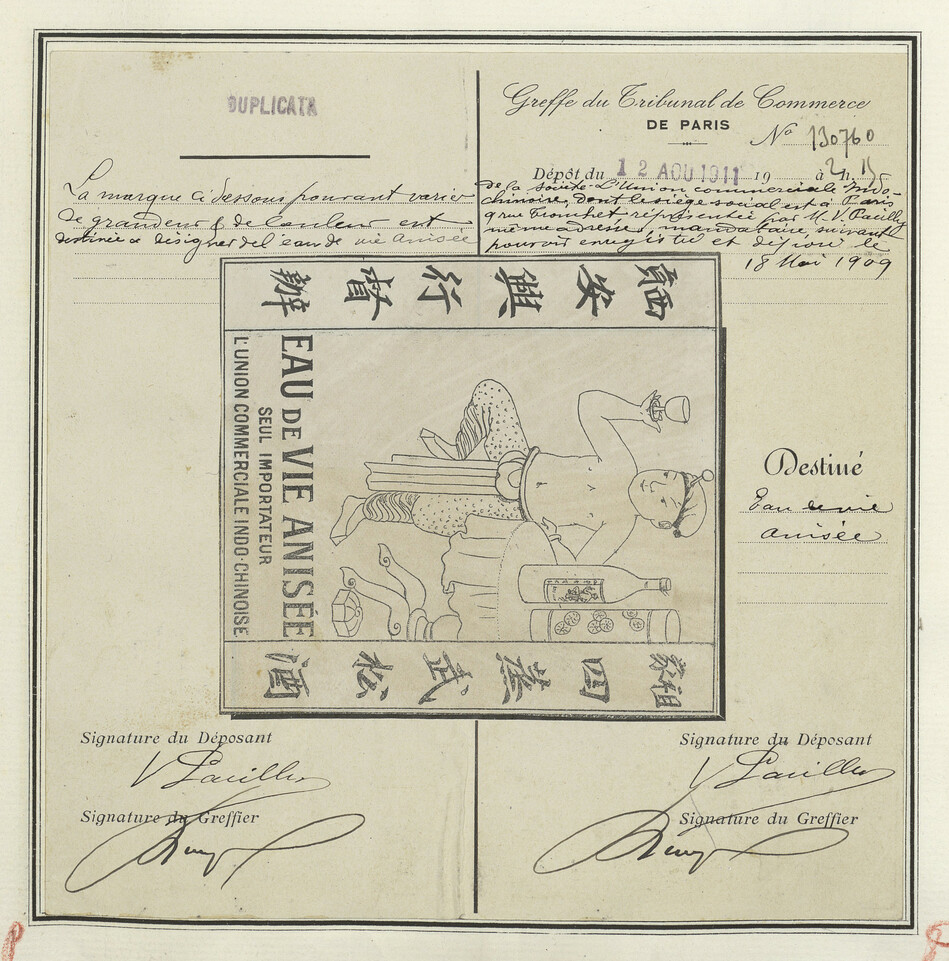 DUPLICATA
La marque ci dessous pouvant varier
de grandeur & de couleur est
destinée a désigner de l'eau de vie anisée
Greffe du Tribunal de Commerce
DE PARIS
No 130760
Dépôt du 12 AOU 1911 19 à 2h. 15
de la société L'Union commerciale Indo-
chinoise, dont le siège social est à Paris
9 rue Tronchet représentée par M. V.
même adresse, mandataire, suivant
pouvoir enregistré et déposé le
18 Mai 1909
西貢安興行督辦
EAU DE VIE ANISÉE
SEUL IMPORTATEUR
L'UNION COMMERCIALE INDO-CHINOISE
四蒸武松酒
Destiné
Eau de vie
anisée
Signature du Déposant
Signature du Greffier
Signature du Déposant
Signature du Greffier